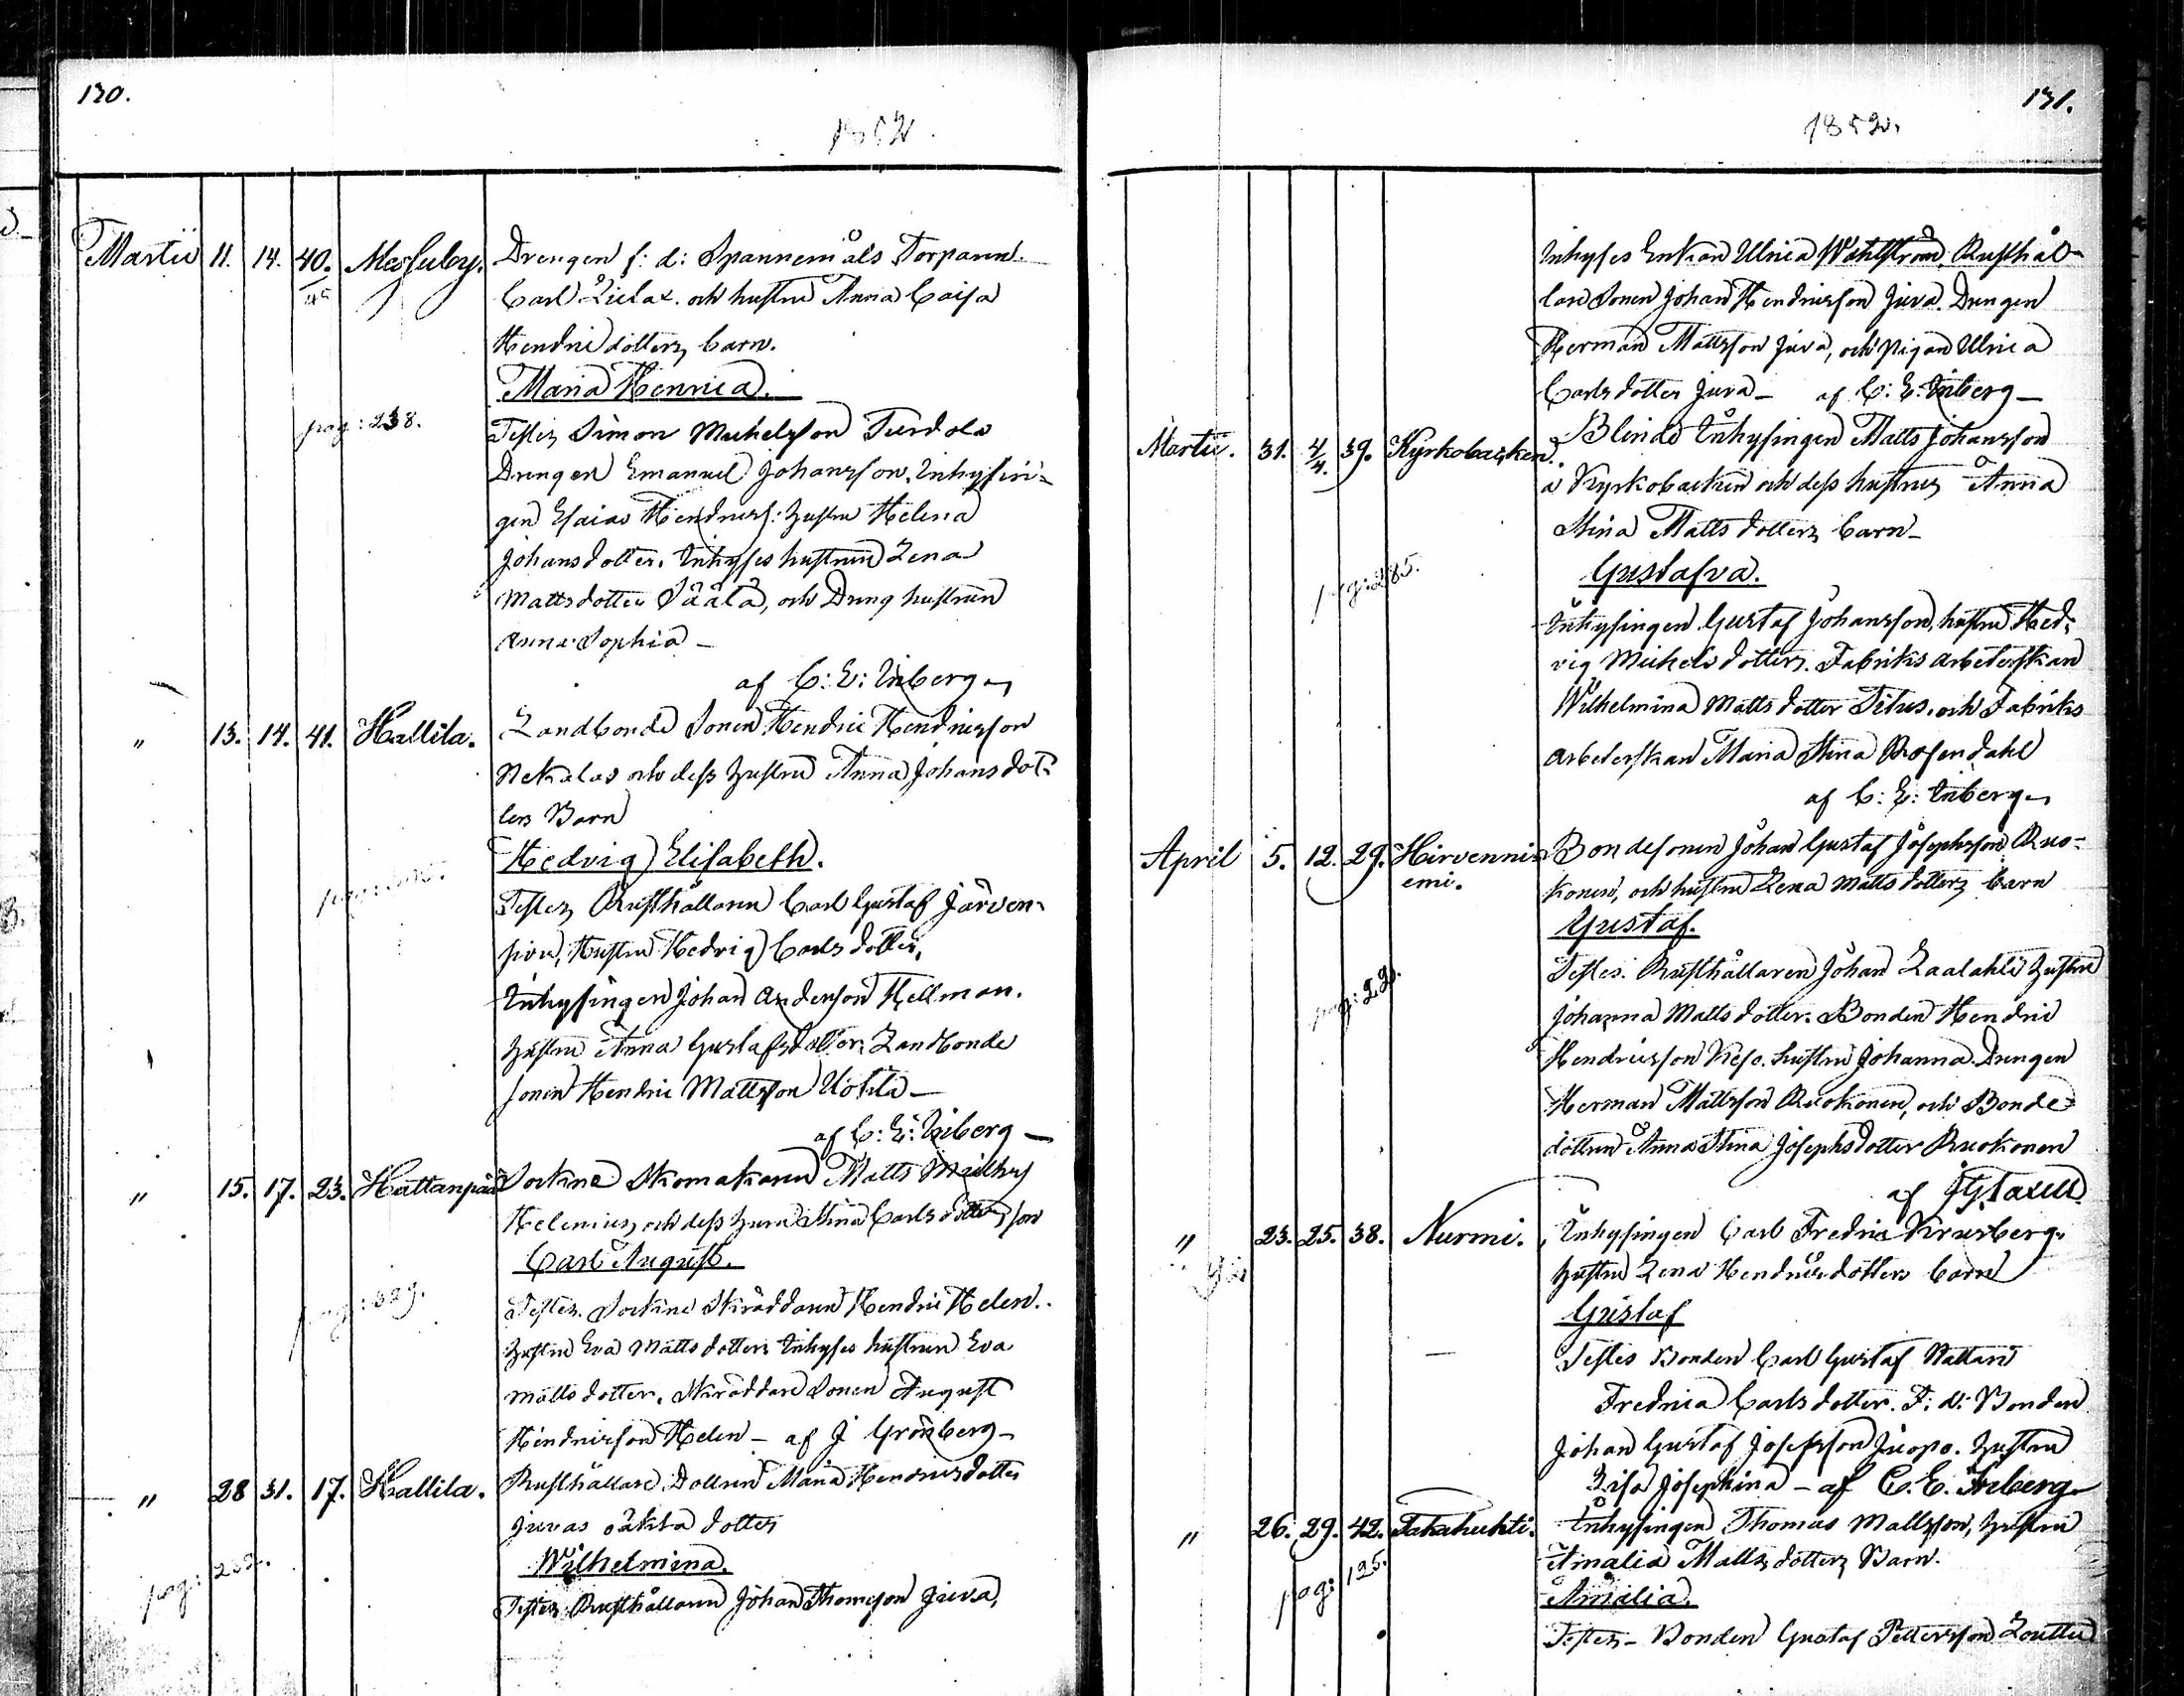 130.
1852.
Martii 11. 14. 40. Messuby. Drengen f: d: Spannemåls Torparen
Carl och hustru Anna Caisa
Hendricsdotters barn.
Maria Henrica.
pag: 238.
Testes Simon Michelsson Turdola
Drengen Emanuel Johansson, Inhysin-
gen Esaias Hendricss: hustru Helena
Johansdotter. Inhyses hustrun Lena
Mattsdotter Säätä, och Dreng hustrun
Anna Sophia –
af C: E: Inberg –
" 13. 14. 41. Hallila. Landbonde Sonen Hendric Hendricsson
Nekalas och dess hustru Anna Johansdot-
ters Barn
Hedvig Elisabeth.
Testes Rusthållaren Carl Gustaf Järven-
, Hustru Hedvig Carlsdotter,
Inhysingen Johan Andersson Hellman.
hustru Anna Gustafsdotter. Landbonde
sonen Hendric Mattsson Uotila –
af C: E: Inberg –
" 15. 17. 23. Hattanpää Sockne Skomakaren Matts
Helenius, och dess hustru Stina Carlsdotters son
Carl August.
pag: 329.
Testes. Sockne Skräddaren Hendric Helen.
hustru Eva Mattsdotter. Inhyses hustrun Eva
Mattsdotter. Skräddare Sonen August
Hendricsson Helen – af J Grönberg –
" 28 31. 17. Hallila. Rusthållare Dottren Maria Hendricsdotter
Juvas oäkta dotter
Wilhelmina.
pag:
Testes Rusthållaren Johan Thomsson Juva,
131.
1852.
Inhyses Enkan Ulrica Wahlström, Rusthål-
lare Sonen Johan Hendricsson Juva. Drengen
Herman Mattsson Juva, och Pigan Ulrica
Carlsdotter Juva – af C: E: Inberg –
Martii. 31. 4/4. 39. Kyrkobacken. Blinde Inhysingen Matts Johansson
å Kyrkobacken och dess hustrus Anna
Stina Mattsdotters barn –
Gustafva.
pag: 285.
Inhysingen Gustaf Johansson, hustru Hed-
vig Michelsdotter. Fabriks arbeterskan
Wilhelmina Mattsdotter Titus, och Fabriks
arbeterskan Maria Stina Rosendahl
af C: E: Inberg –
April 5. 12. 29. Hirvenni-
emi.
Bondesonen Johan Gustaf Josephsson Ruo-
konen, och hustru Lena Mattsdotters barn
Gustaf.
pag: 22.
Testes. Rusthållaren Johan Laalahti hustru
Johanna Mattsdotter. Bonden Hendric
Hendricsson hustru Johanna. Drengen
Herman Mattsson Ruokonen, och Bonde
dottren Anna Stina Josephsdotter Ruokonen
af JG Taxell
" 23. 25. 38. Nurmi. Inhysingen Carl Fredric Krusberg.
hustru Lena Hendricsdotters barn
Gustaf
Testes Bonden Carl Gustaf Nattari
Fredrica Carlsdotter. F: d: Bonden
Johan Gustaf Josefsson Juopo. hustru
Lisa Josephina – af C. E. Inberg
" 26. 29. 42. Takahuhti. Inhysingen Thomas Mattsson, hustru
Amalia Mattsdotters Barn.
Amalia.
pag: 125.
Testes – Bonden Gustaf Pettersson